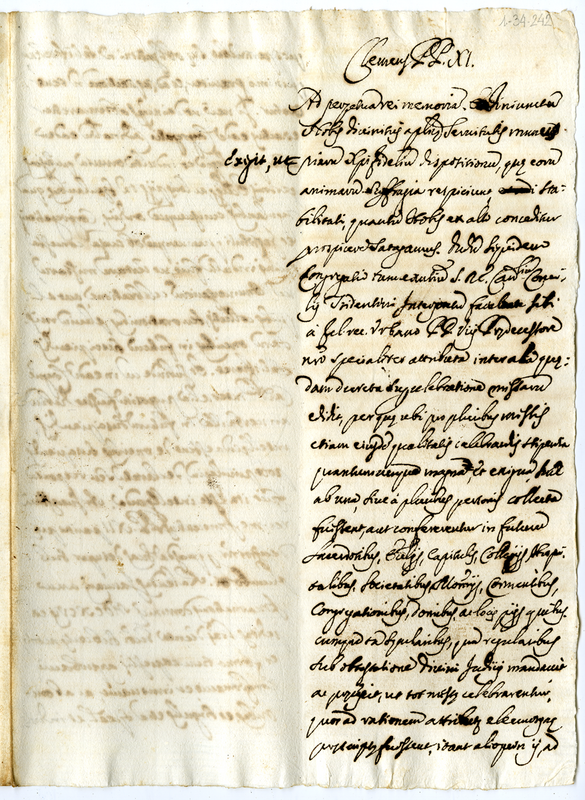 1-34-242
Clemens PP. XI.
Ad perpetuã rei memoriã. Iniunctũ
Nobis divinitus aplicę servitutis munus
exigit, ut piarũ Xpi fidelium dispositionũ, quę eorũ
animarũ suffragia respiciunt sta-
bilitati, quantũ Nobis ex alto conceditur
prospicere satagamus. Dudũ siquidem
Congregatio tunc exñtiũ S. R. E. Card.lium Conci-
lij Tridentini Interpretũ facultate sibi
à fel. rec. Urbano PP. VIII Prędecessore
nrõ specialiter attributa inter alia quę-
dam decreta de celebratione missarũ
edidit, per quę ubi pro pluribus missis
etiam eiusdẽ qualitatis celebrandis stipendia
quantumcumque magna, et exigua, sive
ab una, sive à pluribus personis collecta
fuissent, aut conferrentur in futurũ
Sacerdotibus, Ecclijs, Capitulis, Collegijs, Hospi-
talibus, Societatibus, Monrijs, Conventibus,
Congregationibus, domibus, ac locis pijs quibus-
cumque tã sęcularibus, quã regularibus
sub obtestatione divini Judicij mandavit
ac pręcepit, ut tot missę celebrarentur,
quot ad rationem attributę eleemosynę
pręscriptę fuissent, itaut alioquin ij, ad